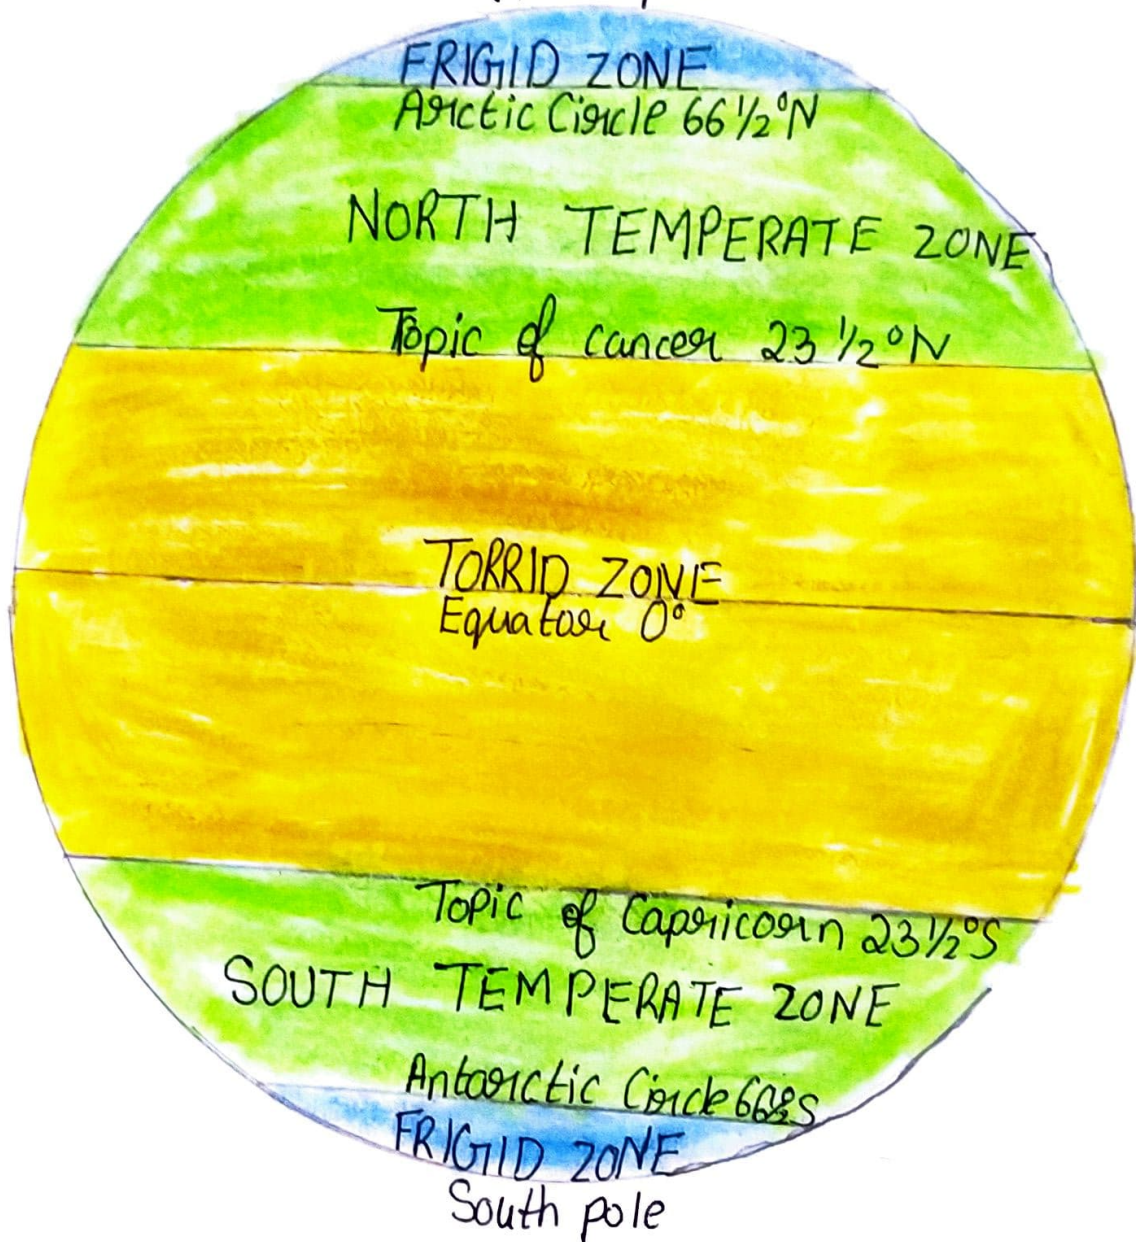 FRIGID ZONE
Arctic Circle 66 1/2°N
NORTH TEMPERATE ZONE
Topic of cancer 23 1/2°N
TORRID ZONE
Equator 0°
Topic of Capricorn 23 1/2°S
SOUTH TEMPERATE ZONE
Antarctic Circle S
FRIGID ZONE
South pole